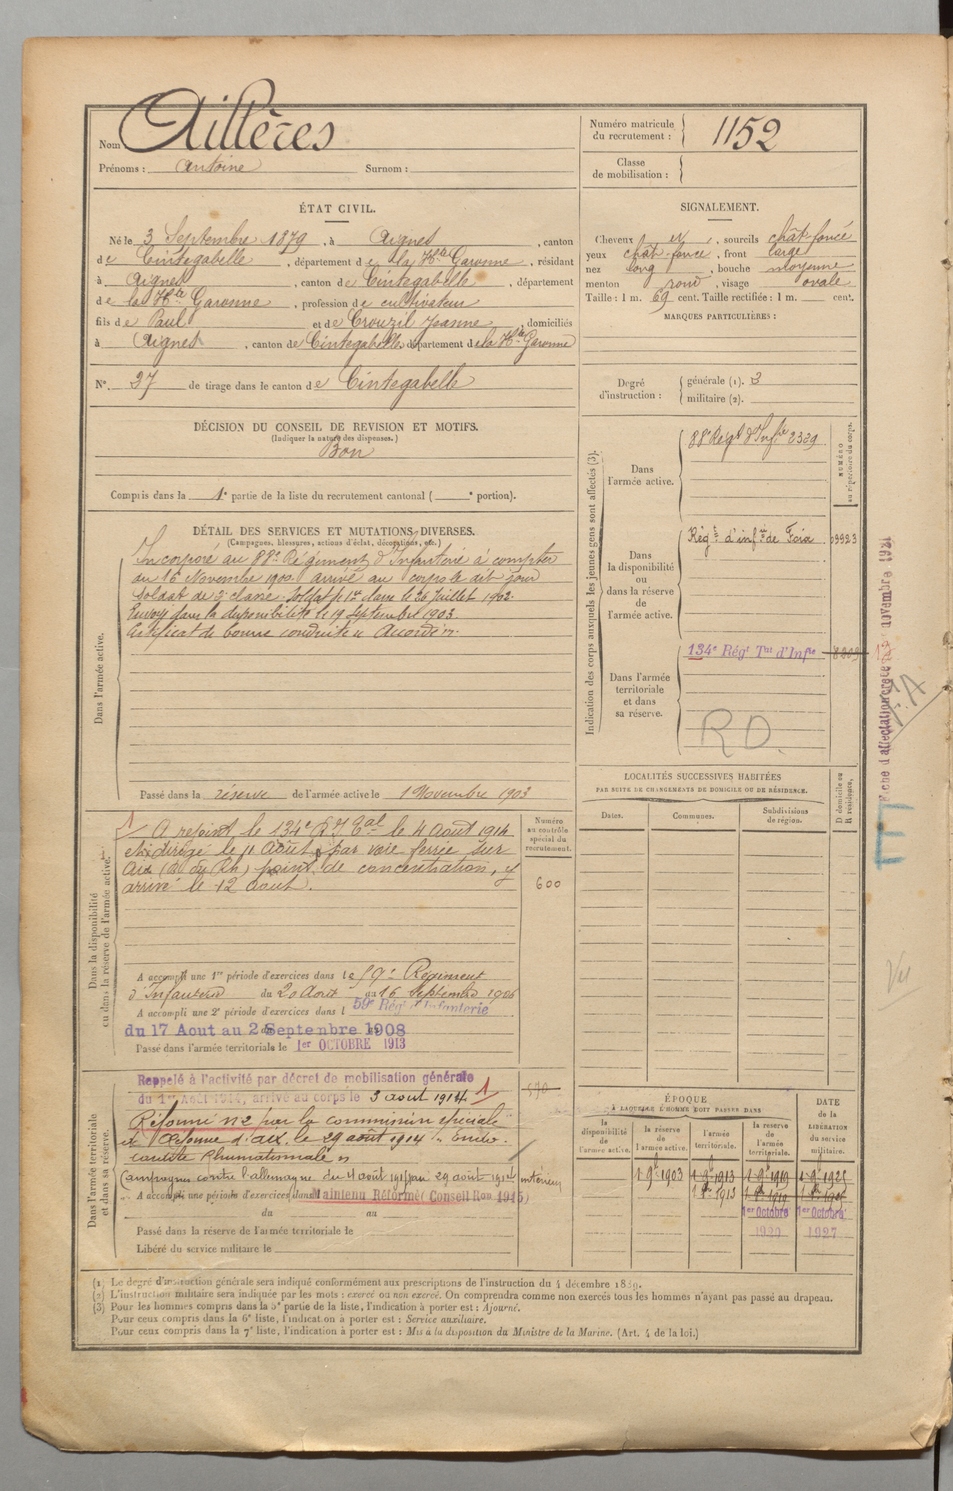 Nom Aillères
Prénoms : Antoine Surnom :
Numéro matricule
du recrutement : 1152
Classe
de mobilisation :
ÉTAT CIVIL.
Né le 3 Septembre 1879, à Aignes, canton
de Cintegabelle, département de la Hte Garonne, résidant
à Aignes, canton de Cintegabelle, département
de la Hte Garonne, profession de cultivateur
fils de Paul et de Crouzil Jeanne, domiciliés
à Aignes, canton de Cintegabelle, département de la Hte Garonne
N° 37 de tirage dans le canton de Cintegabelle
SIGNALEMENT.
Cheveux et, sourcils chât-foncé
yeux chât-foncé, front large
nez long, bouche moyenne
menton rond, visage ovale
Taille : 1 m. 69 cent. Taille rectifiée : 1 m. cent.
MARQUES PARTICULIÈRES :
Degré
d'instruction :
générale (1). 3
militaire (2).
DÉCISION DU CONSEIL DE REVISION ET MOTIFS.
(Indiquer la nature des dispenses.)
Bon
Compris dans la 1e partie de la liste du recrutement cantonal ( e portion).
DÉTAIL DES SERVICES ET MUTATIONS DIVERSES.
(Campagnes, blessures, actions d'éclat, décorations, etc.)
Dans l'armée active.
Incorporé au 88e Régiment d'Infanterie à compter
du 16 Novembre 1900 arrivé au corps le dit jour
soldat de 2e classe. Soldat de 1re classe le 26 Juillet 1902
Envoyé dans la disponibilité le 19 Septembre 1903
Certificat de bonne conduite "Accordé".
Passé dans la réserve de l'armée active le 1 Novembre 1903
Indication des corps auxquels les jeunes gens sont affectés (3).
NUMÉRO
au répertoire du corps.
Dans
l'armée active.
88e Régt d'Infie 2329
Dans
la disponibilité
ou
dans la réserve
de
l'armée active.
Régt d'infie de Foix 09923
Dans l'armée
territoriale
et dans
sa réserve.
134e Régt Tal d'Infie
R D.
Fiche d'affectation créée novembre 1921
F.A
Vu
Dans la disponibilité
ou dans la réserve de l'armée active.
A rejoint le 134e R I Tal le 4 Août 1914
et dirigé le 11 Août par voie ferrée sur
Aix (B. du Rh) point de concentration, y
arrivé le 12 août.
Numéro
au contrôle
spécial du
recrutement.
600
A accompli une 1re période d'exercices dans le 59e Régiment
d'Infanterie du 20 Août au 16 Septembre 1906
A accompli une 2e période d'exercices dans l 59e Régt d'Infanterie
du 17 Aout au 2 Septenbre 1908
Passé dans l'armée territoriale le 1er OCTOBRE 1913
LOCALITÉS SUCCESSIVES HABITÉES
PAR SUITE DE CHANGEMENTS DE DOMICILE OU DE RÉSIDENCE.
D domicile ou
R résidence.
Dates. Communes. Subdivisions
de région.
Dans l'armée territoriale
et dans sa réserve.
Rappelé à l'activité par décret de mobilisation générale
du 1er Août 1914, arrivé au corps le 3 août 1914
Réformé n°2 par la commission spéciale
de Réforme d'Aix, le 29 août 1914 "Endo-
cardite Rhumatismale"
Campagne contre l'allemagne du 4 août 1914 au 29 août 1914 intérieur
A accompli une période d'exercices dans Maintenu Réformé (Conseil Ron 1915)
du au
Passé dans la réserve de l'armée territoriale le
Libéré du service militaire le
ÉPOQUE
À LAQUELLE L'HOMME DOIT PASSER DANS
DATE
de la
LIBÉRATION
du service
militaire.
la
disponibilité
de
l'armée active.
la réserve
de
l'armée active.
l'armée
territoriale.
la réserve
de
l'armée
territoriale.
1 9bre 1903 1 9bre 1913 1 9bre 1919 1 9bre 1925
1er Octobre 1er Octobre
1920 1927
(1) Le degré d'instruction générale sera indiqué conformément aux prescriptions de l'instruction du 4 décembre 1889.
(2) L'instruction militaire sera indiquée par les mots : exercé ou non exercé. On comprendra comme non exercés tous les hommes n'ayant pas passé au drapeau.
(3) Pour les hommes compris dans la 5e partie de la liste, l'indication à porter est : Ajourné.
Pour ceux compris dans la 6e liste, l'indication à porter est : Service auxiliaire.
Pour ceux compris dans la 7e liste, l'indication à porter est : Mis à la disposition du Ministre de la Marine. (Art. 4 de la loi.)